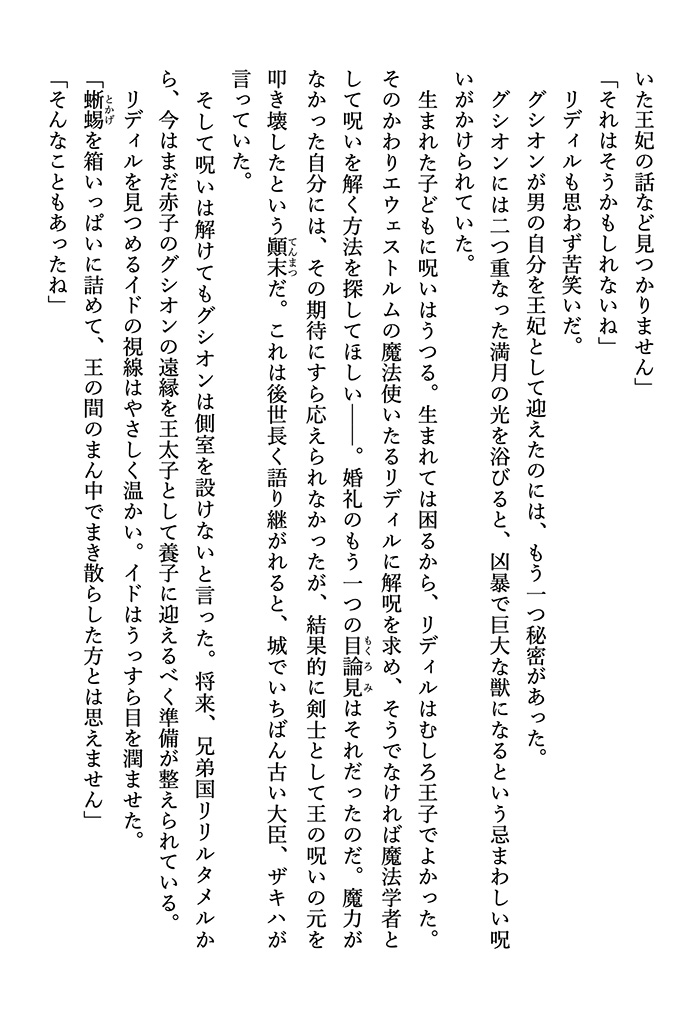 いた王妃の話など見つかりません」
「それはそうかもしれないね」
リディルも思わず苦笑いだ。
グシオンが男の自分を王妃として迎えたのには、もう一つ秘密があった。
グシオンには二つ重なった満月の光を浴びると、凶暴で巨大な獣になるという忌まわしい呪
いがかけられていた。
生まれた子どもに呪いはうつる。生まれては困るから、リディルはむしろ王子でよかった。
そのかわりエウェストルムの魔法使いたるリディルに解呪を求め、そうでなければ魔法学者と
して呪いを解く方法を探してほしい――。婚礼のもう一つの目論見はそれだったのだ。魔力が
なかった自分には、その期待にすら応えられなかったが、結果的に剣士として王の呪いの元を
叩き壊したという顚末だ。これは後世長く語り継がれると、城でいちばん古い大臣、ザキハが
言っていた。
そして呪いは解けてもグシオンは側室を設けないと言った。将来、兄弟国リリルタメルか
ら、今はまだ赤子のグシオンの遠縁を王太子として養子に迎えるべく準備が整えられている。
リディルを見つめるイドの視線はやさしく温かい。イドはうっすら目を潤ませた。
「蜥蜴を箱いっぱいに詰めて、王の間のまん中でまき散らした方とは思えません」
「そんなこともあったね」
もくろみ
てんまつ
とかげ